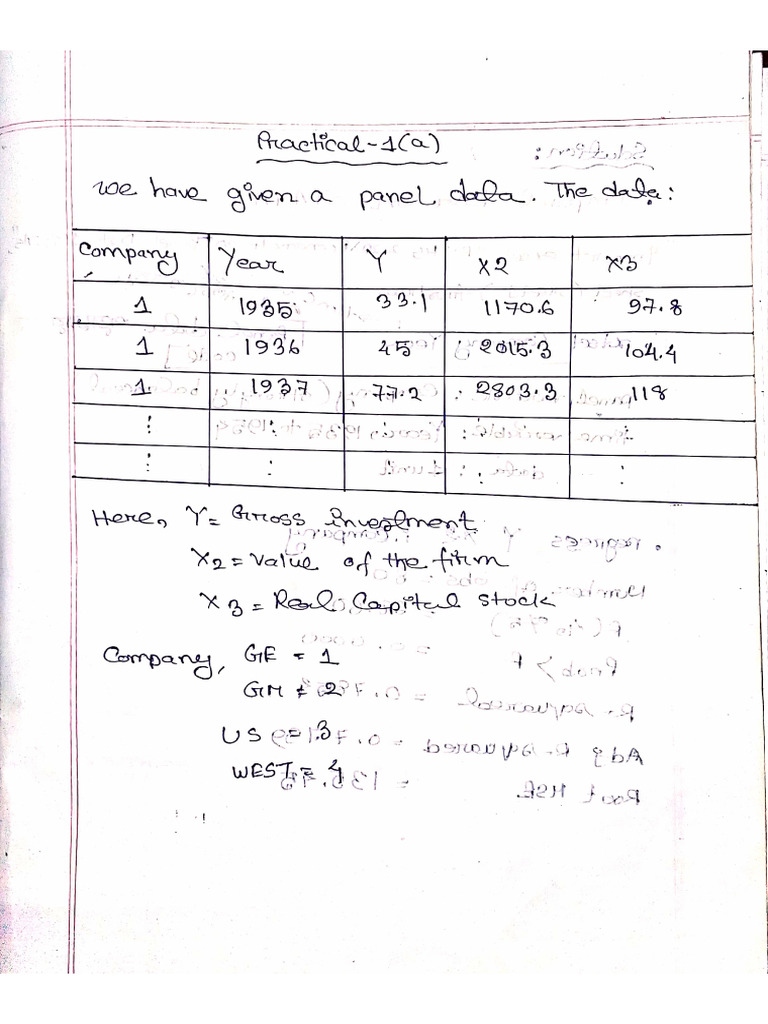 Practical-1(a)
We have given a panel data. The data:
Company Year Y X2 X3
1 1935 33.1 1170.6 97.8
1 1936 45 2015.3 104.4
1 1937 77.2 2803.3 118
Here, Y = Gross investment
X2 = value of the firm
X3 = Real Capital stock
Company, GE = 1
GM = 2
US = 3
WEST = 4